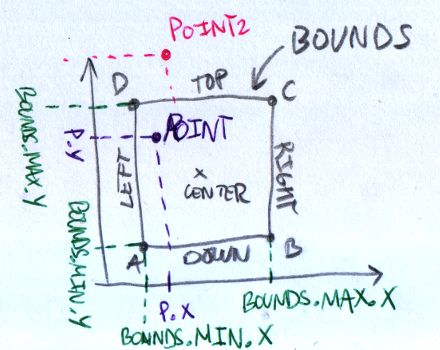 POINT2
BOUNDS
D
TOP
C
BOUNDS.MAX.Y
P.Y
POINT
LEFT
RIGHT
x
CENTER
BOUNDS.MIN.Y
A
DOWN
B
P.X
BOUNDS.MAX.X
BOUNDS.MIN.X